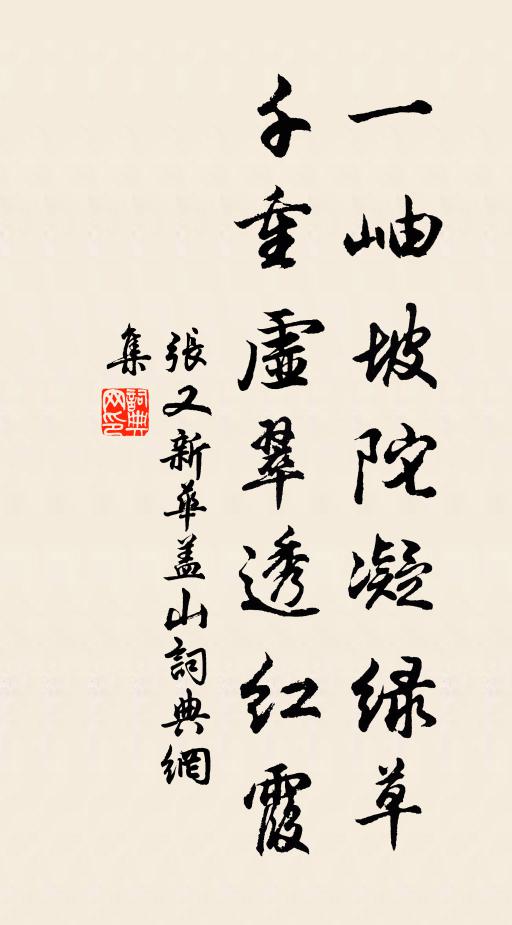 一岫坡陀凝绿草
千重虛翠透红霞
張又新華蓋山詞典網
集
詞典
网印